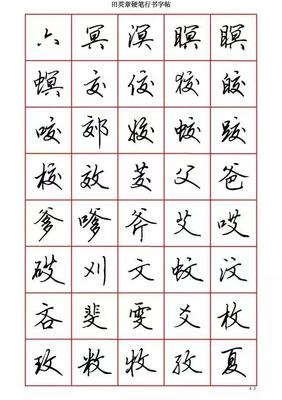 田英章硬笔行书字帖
六 冥 溟 暝 瞑
螟 交 佼 狡 皎
咬 郊 姣 蛟 跤
校 效 芰 父 爸
爹 嗲 斧 艾 哎
砹 刈 文 蚊 汶
吝 斐 雯 爻 枚
玫 敉 牧 孜 夏
43